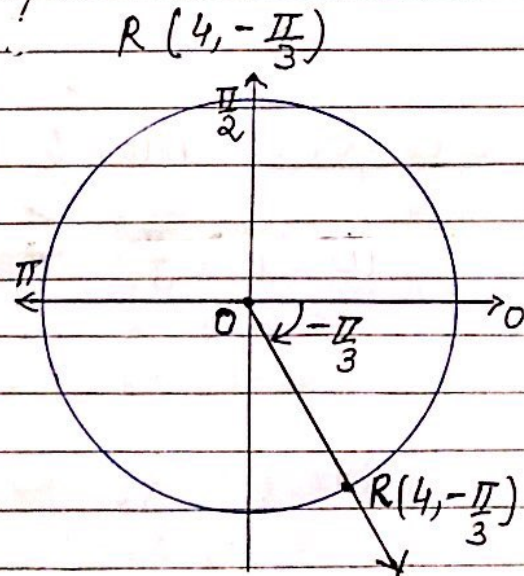 R (4, -π/3)
π/2
π
O
0
-π/3
R(4, -π/3)